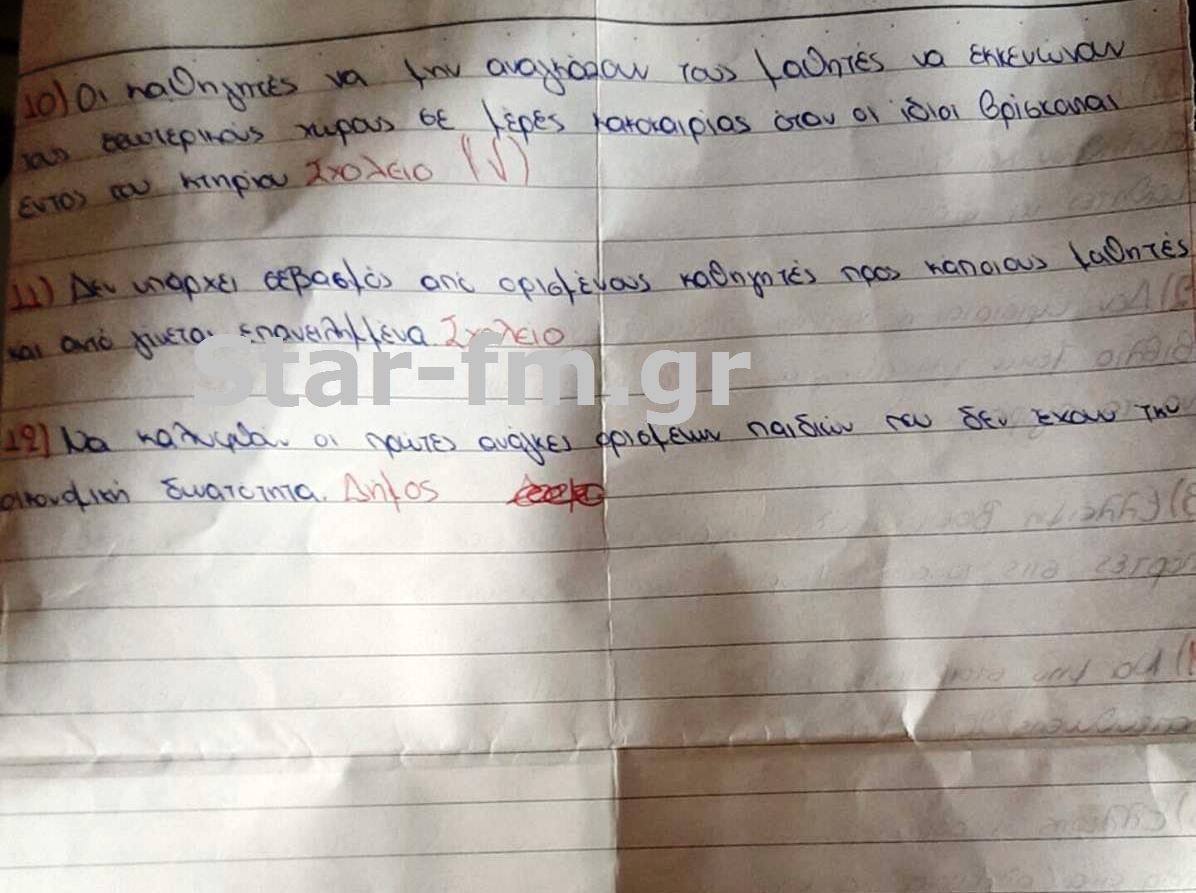 10) Οι καθηγητές να μην αναγκάζουν τους μαθητές να εκκενώνουν
τους εσωτερικούς χώρους σε μέρες κατακαιρίας όταν οι ίδιοι βρίσκονται
εντός του κτηρίου Σχολείο (√)
11) Δεν υπάρχει σεβασμός από ορισμένους καθηγητές προς κάποιους μαθητές
και αυτό γίνεται επανειλημμένα Σχολείο
Star-fm.gr
12) Να καλυφθούν οι πρώτες ανάγκες ορισμένων παιδιών που δεν έχουν την
οικονομική δυνατότητα. Δήμος